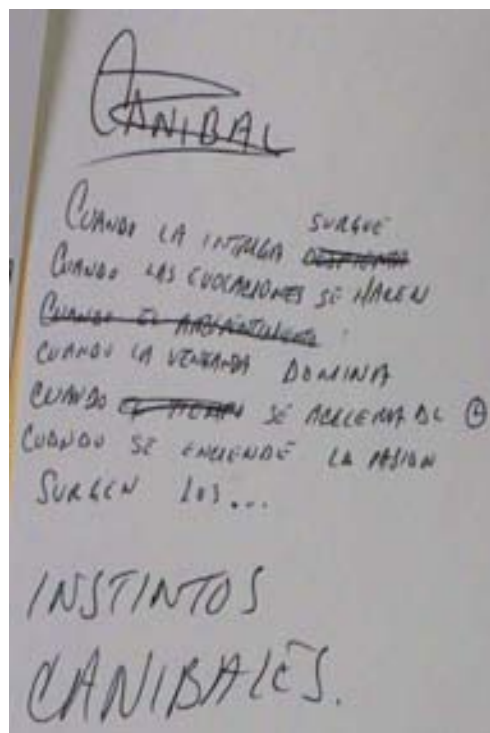 CANIBAL
SURGUE
CUANDO LA INTRIGA
CUANDO LAS EVOCACIONES SE HACEN
CUANDO EL
CUANDO LA VENGANZA DOMINA
CUANDO SE ACELERA DL
CUANDO SE ENCIENDE LA PASION
SURGEN LOS...
INSTINTOS
CANIBALES.